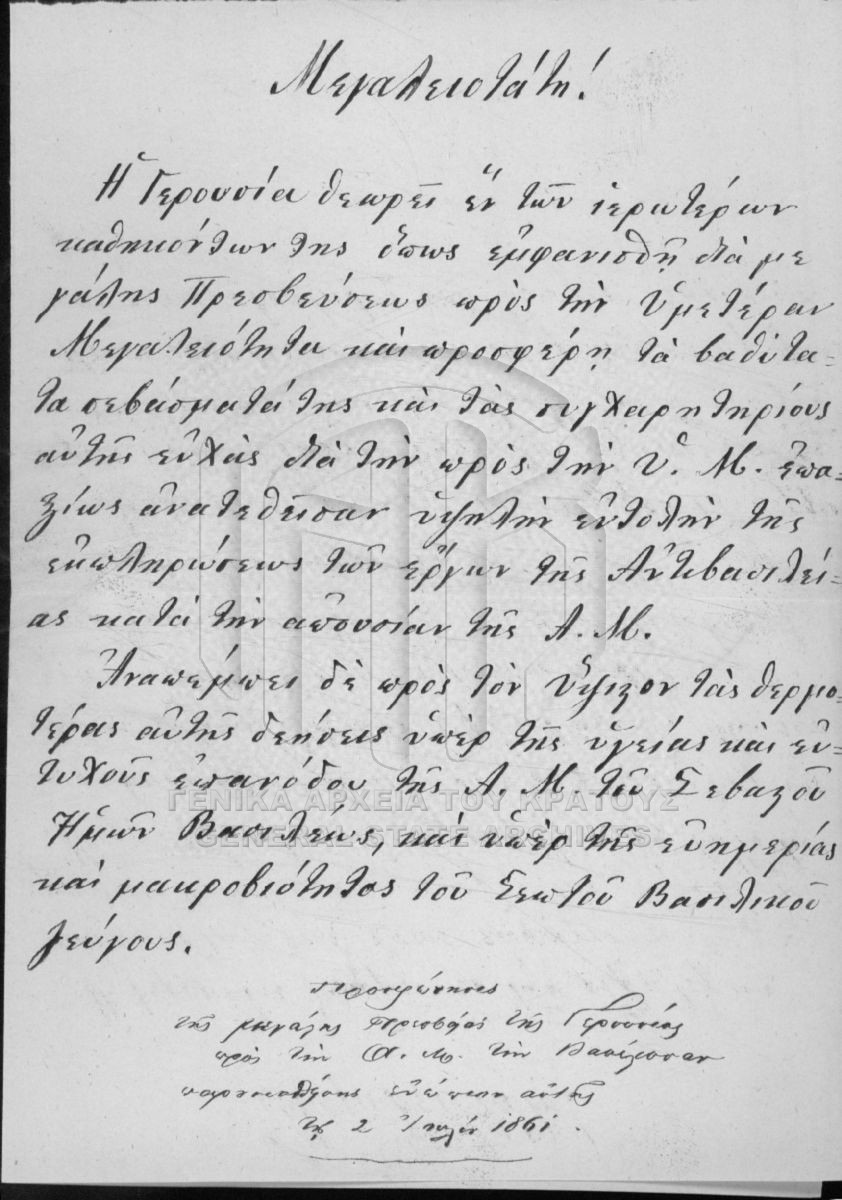 Μεγαλειοτάτη!
Ἡ Γερουσία θεωρεῖ ἓν τῶν ἱερωτέρων
καθηκόντων της ὅπως ἐμφανισθῇ διὰ με
γάλης Πρεσβεύσεως πρὸς τὴν Ὑμετέραν
Μεγαλειότητα καὶ προσφέρῃ τὰ βαθύτα-
τα σεβάσματά της καὶ τὰς συγχαρητηρίους
αὐτῆς εὐχὰς διὰ τὴν πρὸς τὴν Ὑ. Μ. ἐπα-
ξίως ἀνατεθεῖσαν ὑψηλὴν ἐντολὴν τῆς
ἐκπληρώσεως τῶν ἔργων τῆς Ἀντιβασιλεί-
ας κατὰ τὴν ἀπουσίαν τῆς Α. Μ.
Ἀναπέμπει δὲ πρὸς τὸν Ὕψιστον τὰς θερμο-
τέρας αὐτῆς δεήσεις ὑπὲρ τῆς ὑγείας καὶ εὐ-
τυχοῦς ἐπανόδου τῆς Α. Μ. τοῦ Σεβαστοῦ
Ἡμῶν Βασιλέως, καὶ ὑπὲρ τῆς εὐημερίας
καὶ μακροβιότητος τοῦ Σεπτοῦ Βασιλικοῦ
Ζεύγους.
ΓΕΝΙΚΑ ΑΡΧΕΙΑ ΤΟΥ ΚΡΑΤΟΥΣ
GENERAL STATE ARCHIVES
προσφώνησις
τῆς μεγάλης πρεσβείας τῆς Γερουσίας
πρὸς τὴν Α. Μ. τὴν Βασίλισσαν
παρουσιασθείσης ἐνώπιον αὐτῆς
τῇ 2 Ἰουλίου 1861.